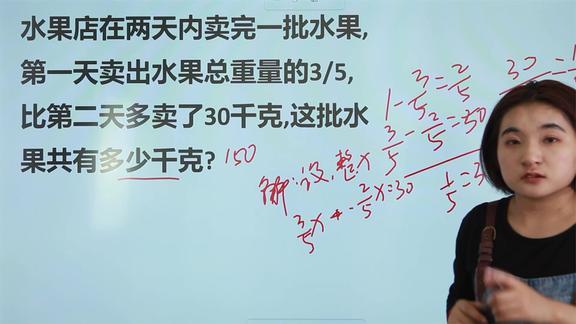 水果店在两天内卖完一批水果,
第一天卖出水果总重量的3/5,
比第二天多卖了30千克,这批水
果共有多少千克? 150
1-3/5=2/5
3/5-2/5=30
解:设整x
3/5x-2/5x=30
30
1/5=3